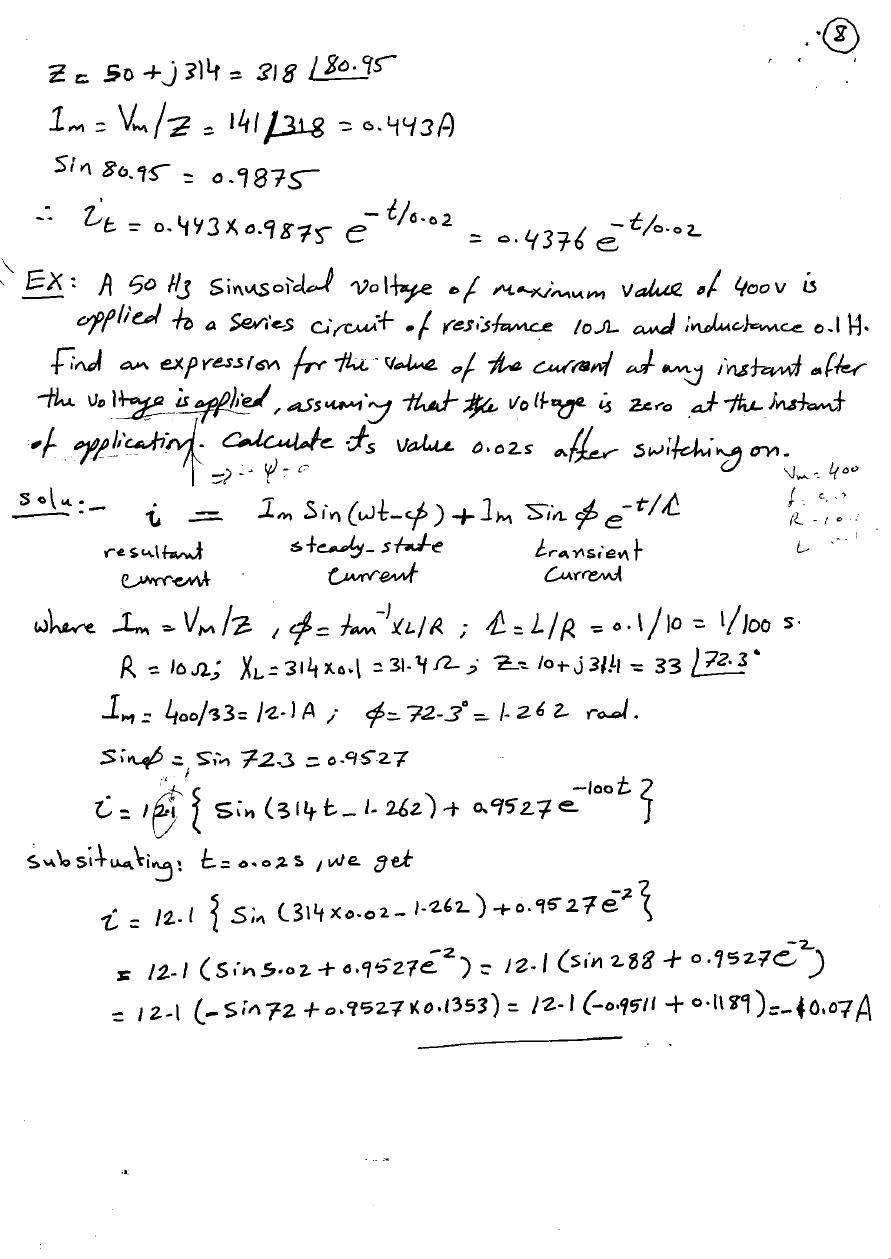 8
Z = 50 + j 314 = 318 ∠80.95
Im = Vm/Z = 141/318 = 0.443A
Sin 80.95 = 0.9875
∴ it = 0.443 x 0.9875 e^-t/0.02 = 0.4376 e^-t/0.02
EX: A 50 Hz Sinusoidal voltage of maximum value of 400v is
applied to a series circuit of resistance 10Ω and inductance 0.1 H.
Find an expression for the value of the current at any instant after
the voltage is applied, assuming that the voltage is zero at the instant
of application. Calculate its value 0.02s after switching on.
⇒ ∴ ψ = 0
Vm = 400
Solu:- i = Im Sin(wt-φ) + Im Sin φ e^-t/τ
resultant steady-state transient
current current current
where Im = VM/Z , φ = tan^-1 XL/R ; τ = L/R = 0.1/10 = 1/100 s.
R = 10Ω; XL = 314 x 0.1 = 31.4 Ω ; Z = 10 + j 31.4 = 33 ∠72.3°
Im = 400/33 = 12.1A ; φ = 72.3° = 1.262 rad.
Sinφ = Sin 72.3 = 0.9527
i = 12.1 { Sin (314t - 1.262) + 0.9527 e^-100t }
subsituating: t = 0.02s , we get
i = 12.1 { Sin (314 x 0.02 - 1.262) + 0.9527 e^-2 }
= 12.1 (Sin 5.02 + 0.9527e^-2) = 12.1 (Sin 288 + 0.9527e^-2)
= 12.1 (-Sin 72 + 0.9527 x 0.1353) = 12.1 (-0.9511 + 0.1189) = -10.07A